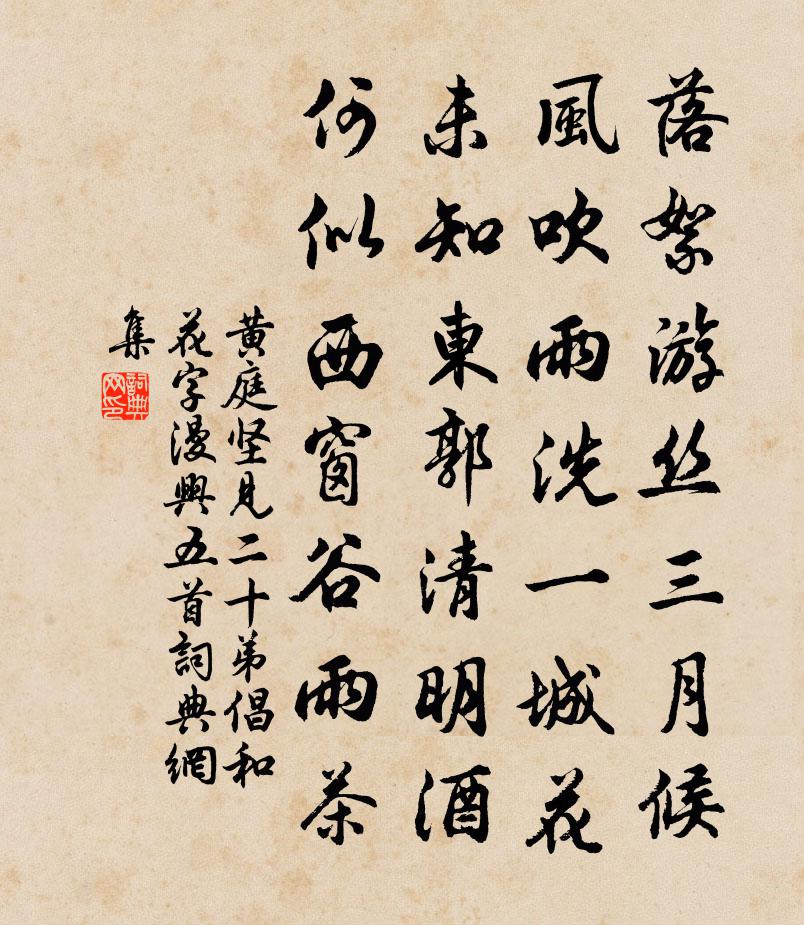 落絮游丝三月候
風吹雨洗一城花
未知東郭清明酒
何似西窗谷雨茶
黄庭坚見二十弟倡和
花字漫興五首詞典網
集
詞典
网印